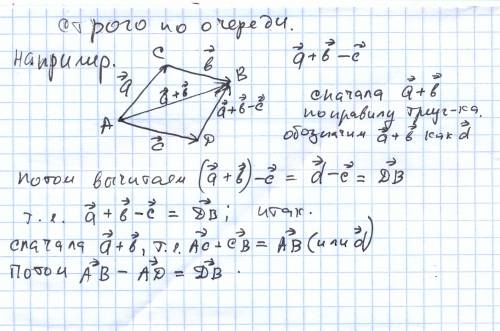 строго по очереди.
например.
C
b⃗
B
a⃗
a⃗+b⃗
a⃗+b⃗-c⃗
A
c⃗
D
a⃗+b⃗-c⃗
сначала a⃗+b⃗
по правилу треуг-ка.
обозначим a⃗+b⃗ как d⃗
потом вычитаем (a⃗+b⃗)-c⃗ = d⃗-c⃗ = D⃗B
т.е. a⃗+b⃗-c⃗ = D⃗B; итак.
сначала a⃗+b⃗, т.е. A⃗C+C⃗B = A⃗B (или d⃗)
Потом A⃗B - A⃗D = D⃗B.